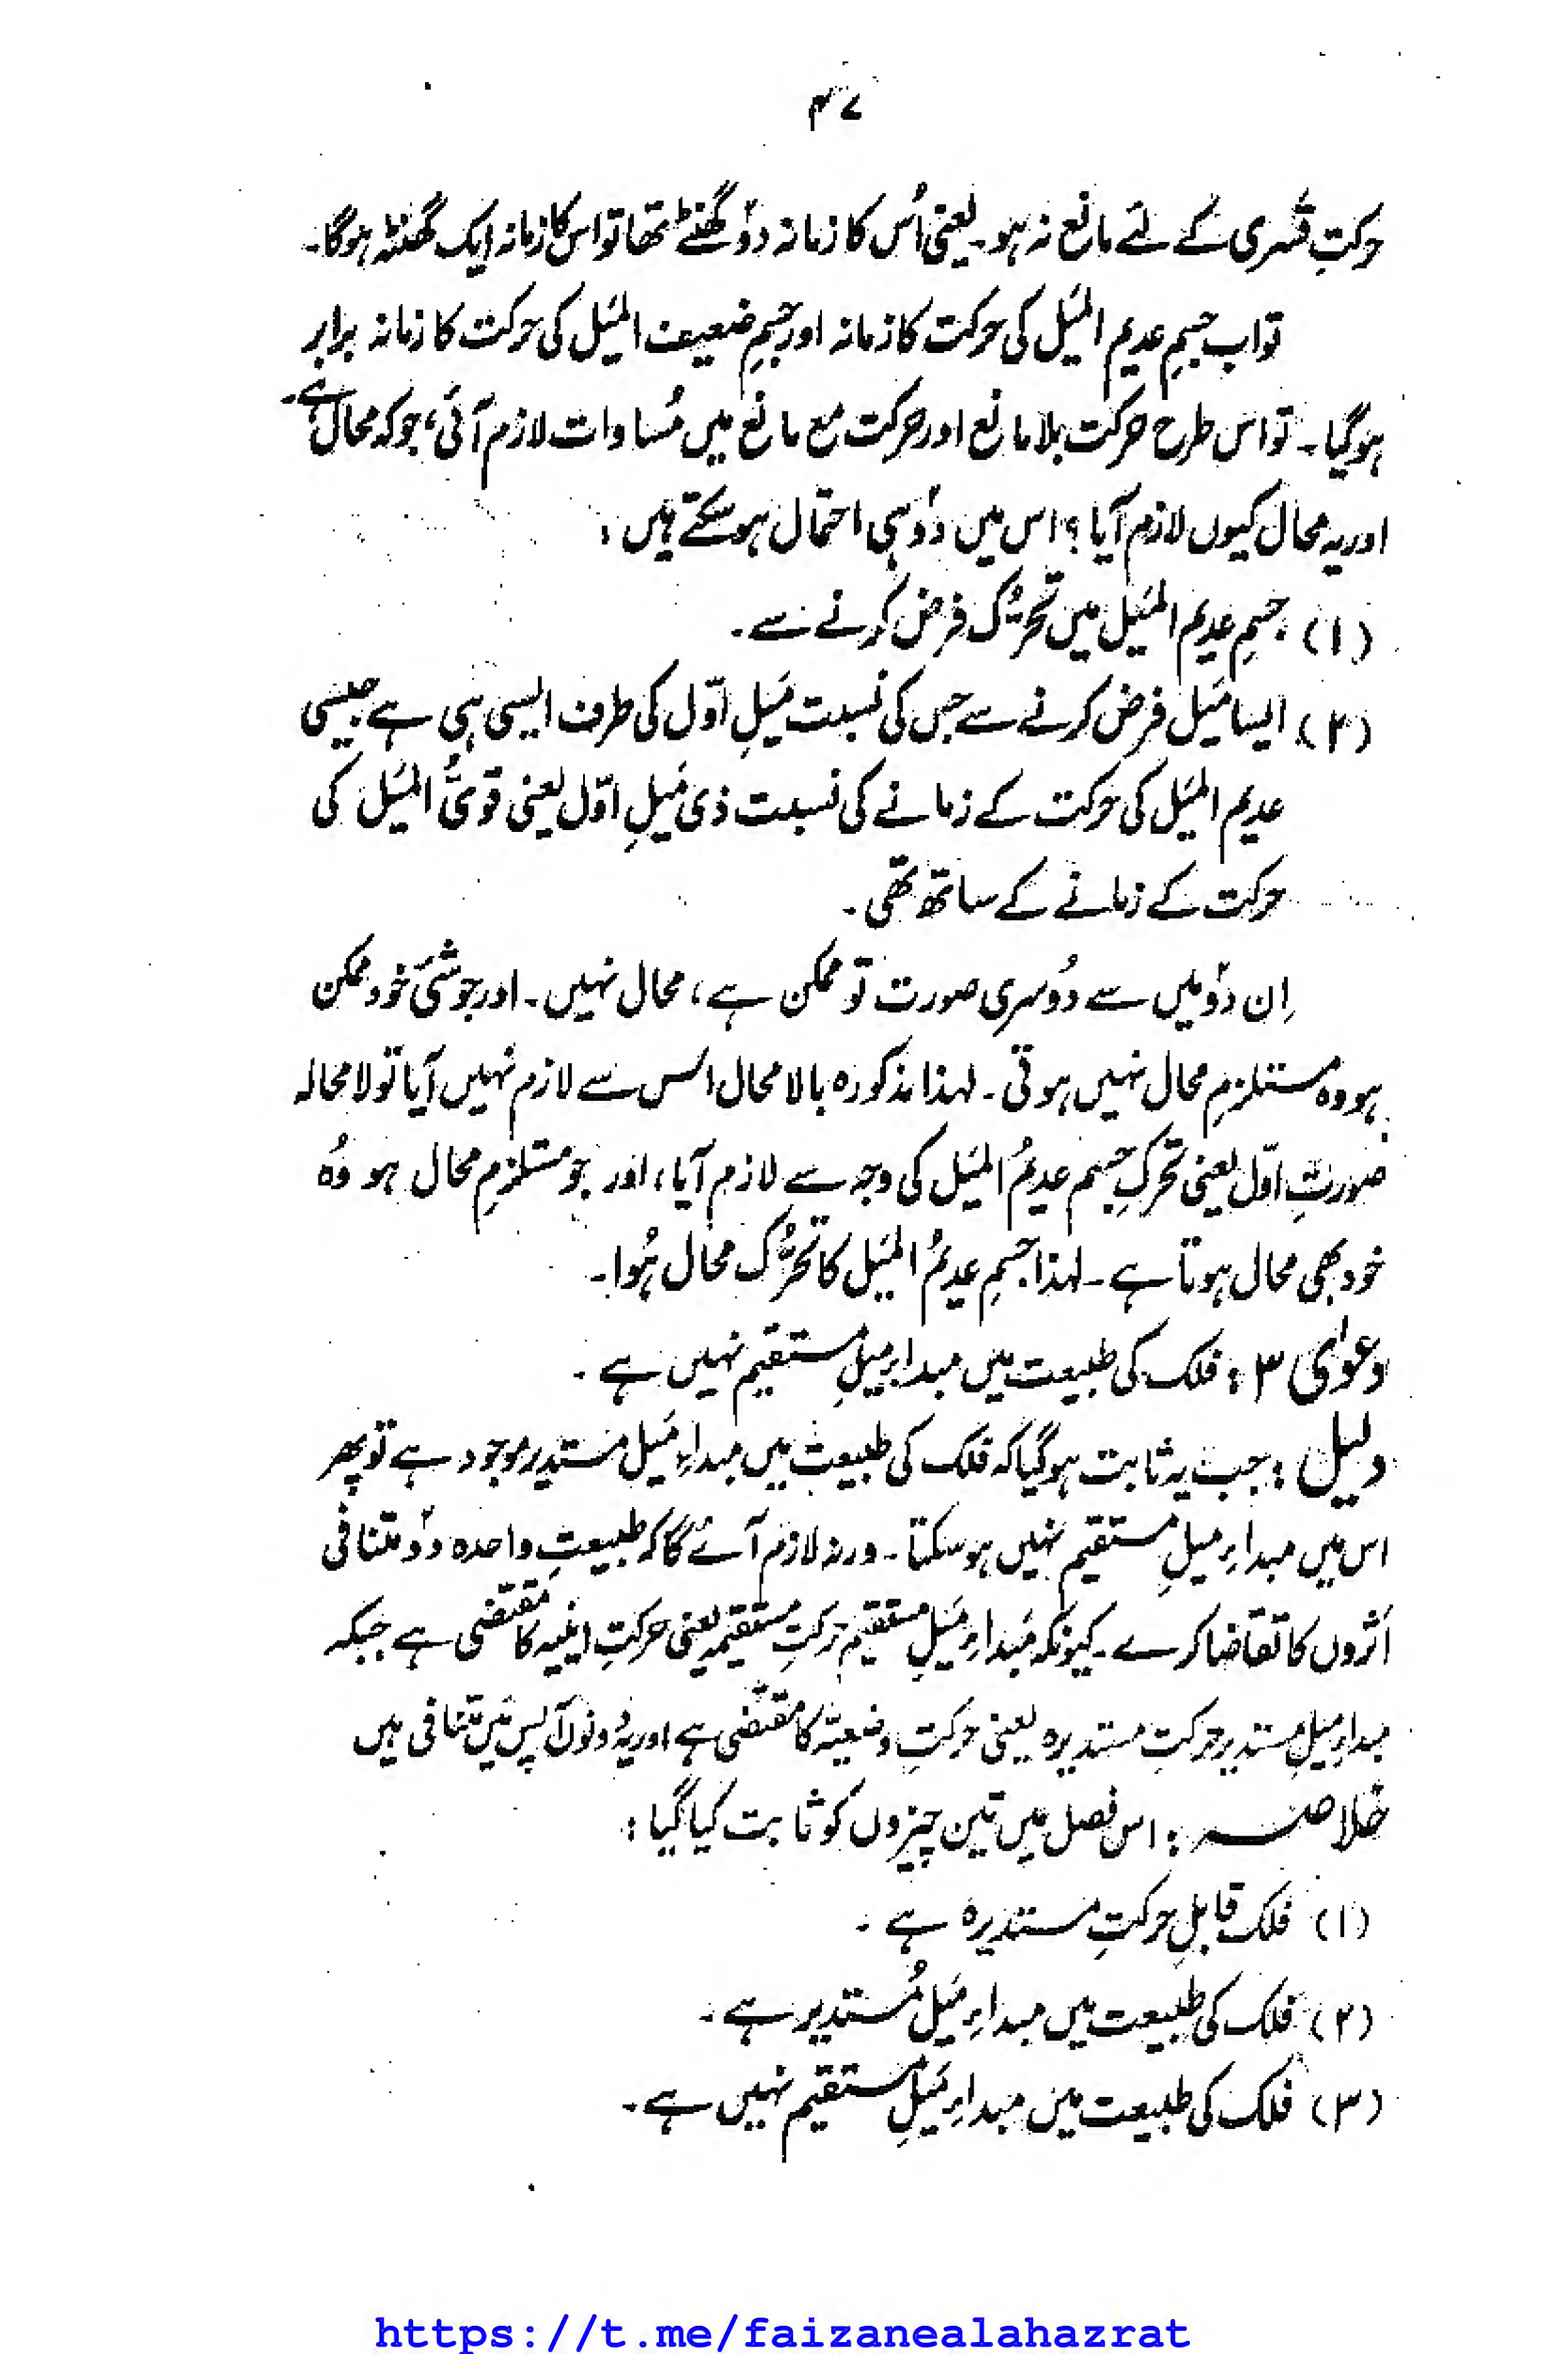 ۴۷
حرکتِ قَسری کے لئے مانع نہ ہو۔ یعنی اُس کا زمانہ دو گھنٹے تھا تو اس کا زمانہ ایک گھنٹہ ہوگا۔
تو اب جسمِ عدیم المَیل کی حرکت کا زمانہ اور جسمِ ضعیف المَیل کی حرکت کا زمانہ برابر
ہوگیا۔ تو اس طرح حرکت بلا مانع اور حرکت مع مانع میں مُساوات لازم آئی، جو کہ محال ہے۔
اور یہ محال کیوں لازم آیا؟ اس میں دو ہی احتمال ہو سکتے ہیں :
(۱) جسمِ عدیم المَیل میں تحرُّک فرض کرنے سے۔
(۲) ایسا مَیل فرض کرنے سے جس کی نسبت مَیلِ اوّل کی طرف ایسی ہی ہے جیسی
عدیم المَیل کی حرکت کے زمانے کی نسبت ذی مَیلِ اوّل یعنی قویُّ المَیل کی
حرکت کے زمانے کے ساتھ تھی۔
اِن دو میں سے دُوسری صورت تو ممکن ہے، محال نہیں۔ اور جو شَیٔ خود ممکن
ہو وہ مستلزمِ محال نہیں ہوتی۔ لہذا مذکورہ بالا محال اس سے لازم نہیں آیا تو لامحالہ
صورتِ اوّل یعنی تحرکِ جسم عدیمُ المَیل کی وجہ سے لازم آیا، اور جو مستلزمِ محال ہو وُہ
خود بھی محال ہوتا ہے۔ لہذا جسمِ عدیمُ المَیل کا تحرُّک محال ہُوا۔
دعوٰی ۳ : فلک کی طبیعت میں مبداءِ میلِ مستقیم نہیں ہے۔
دلیل : جب یہ ثابت ہوگیا کہ فلک کی طبیعت میں مبداءِ مَیل مستدیر موجود ہے تو پھر
اس میں مبداءِ میلِ مستقیم نہیں ہو سکتا۔ ورنہ لازم آئے گا کہ طبیعتِ واحدہ دو متنافی
اَثروں کا تقاضا کرے۔ کیونکہ مَبداءِ مَیلِ مستقیم حرکتِ مستقیمہ یعنی حرکتِ اینیہ کا مقتضی ہے جبکہ
مبداءِ میلِ مستدیر حرکتِ مستدیرہ یعنی حرکتِ وضعیّہ کا مقتضی ہے اور یہ دونوں آپس میں متنافی ہیں
خلاصہ : اس فصل میں تین چیزوں کو ثابت کیا گیا :
(۱) فلک قابلِ حرکتِ مستدیرہ ہے۔
(۲) فلک کی طبیعت میں مبداءِ مَیلِ مُستدیر ہے۔
(۳) فلک کی طبیعت میں مبداءِ مَیلِ مستقیم نہیں ہے۔
https://t.me/faizanealahazrat